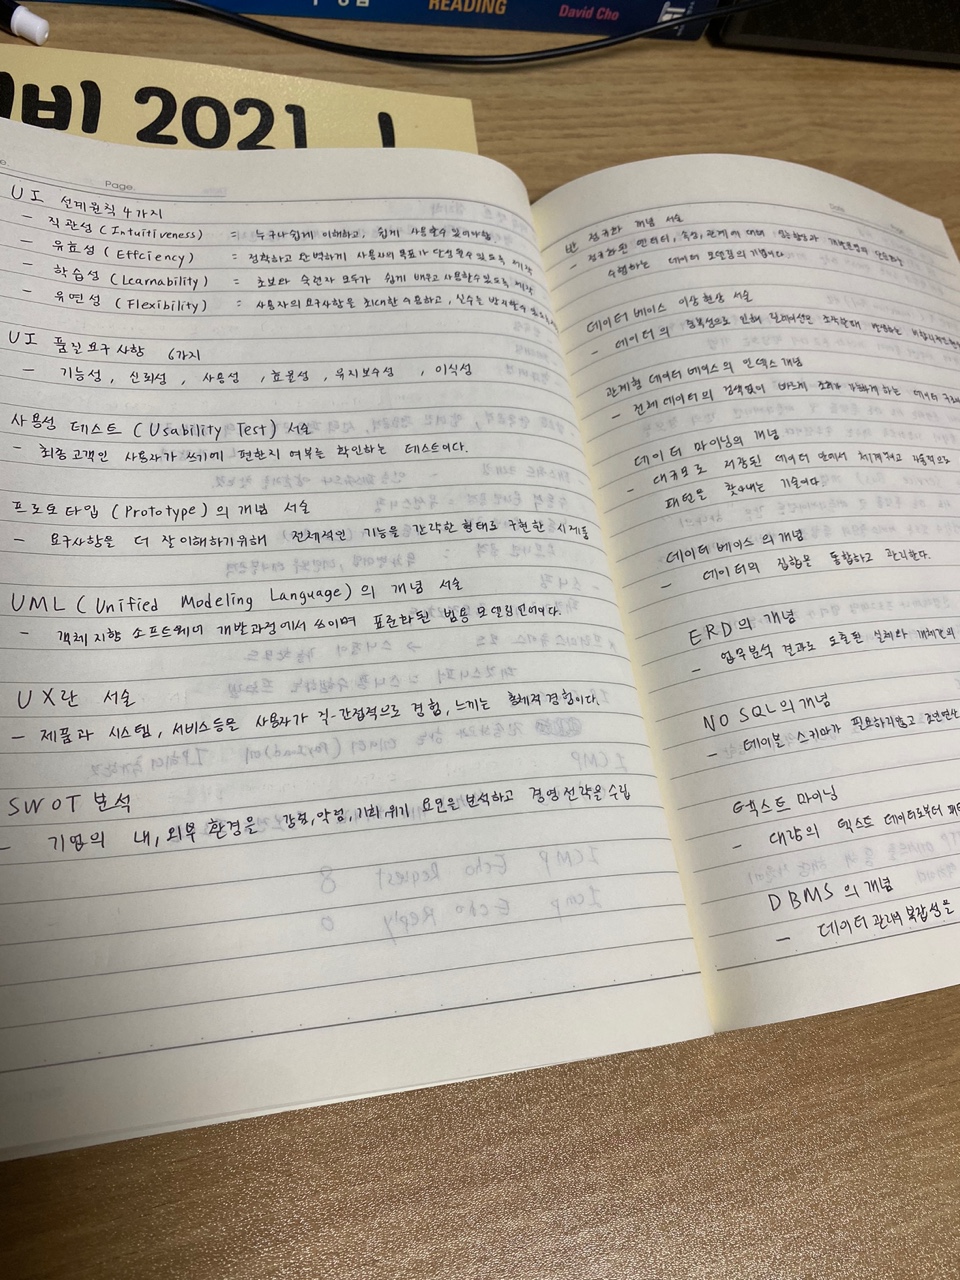 READING
David Cho
비 2021
Page.
UI 설계원칙 4가지
- 직관성 (Intuitiveness) = 누구나 쉽게 이해하고, 쉽게 사용할 수 있어야함
- 유효성 (Effciency) = 정확하고 완벽하게 사용자의 목표가 달성될 수 있도록 제작
- 학습성 (Learnability) = 초보와 숙련자 모두가 쉽게 배우고 사용할 수 있도록 제작
- 유연성 (Flexibility) = 사용자의 요구사항을 최대한 수용하고, 실수는 방지할 수 있도록
UI 품질 요구 사항 6가지
- 기능성, 신뢰성, 사용성, 효율성, 유지보수성, 이식성
사용성 테스트 (Usability Test) 서술
- 최종 고객인 사용자가 쓰기에 편한지 여부를 확인하는 테스트이다.
프로토타입 (Prototype)의 개념 서술
- 요구사항을 더 잘 이해하기위해 전체적인 기능을 간략한 형태로 구현한 시제품
UML (Unified Modeling Language)의 개념 서술
- 객체 지향 소프트웨어 개발과정에서 쓰이며 표준화된 범용 모델링언어이다.
UX란 서술
- 제품과 시스템, 서비스등을 사용자가 직·간접적으로 경험, 느끼는 총체적 경험이다.
SWOT 분석
- 기업의 내, 외부 환경을 강점, 약점, 기회, 위기 요인을 분석하고 경영 전략을 수립
Date.
Page.
반 정규화 개념 서술
- 정규화된 엔터티, 속성, 관계에 대해 성능향상과 개발운영의 단순화
수행하는 데이터 모델링의 기법이다
데이터베이스 이상현상 서술
- 데이터의 중복성으로 인해 릴레이션을 조작할때 발생하는
관계형 데이터 베이스의 인덱스 개념
- 전체 데이터의 검색없이 빠르게 조회가 가능하게 하는 데이터 구조
데이터 마이닝의 개념
- 대규모로 저장된 데이터 안에서 체계적이고
패턴을 찾아내는 기술이다
데이터 베이스의 개념
- 데이터의 집합을 통합하고 관리한다.
ERD의 개념
- 업무분석 결과로 도출된 실체와 개체간의
NO SQL의 개념
- 테이블 스키마가 필요하지않고 조인연산
텍스트 마이닝
- 대량의 텍스트 데이터로부터
DBMS의 개념
- 데이터 관리의 복잡성을